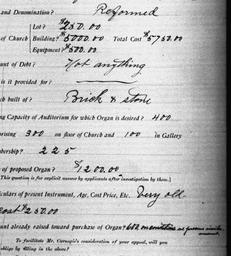 and Denomination? Reformed
Lot? $250.00
of Church Building? $5000.00 Total Cost $5750.00
Equipment? $500.00
unt of Debt? Not anything
is it provided for?
ch built of? Brick & stone
ng Capacity of Auditorium for which Organ is desired? 400
prising 300 on floor of Church and 100 in Gallery
mbership? 225
of proposed Organ? $1200.00
[This question is for explicit answer by applicants after investigation by them.]
culars of present Instrument, Age, Cost Price, Etc. Very old
cost $250.00
unt already raised toward purchase of Organ? 600 on condition
To facilitate Mr. Carnegie's consideration of your appeal, will you
oblige by filling in the above?